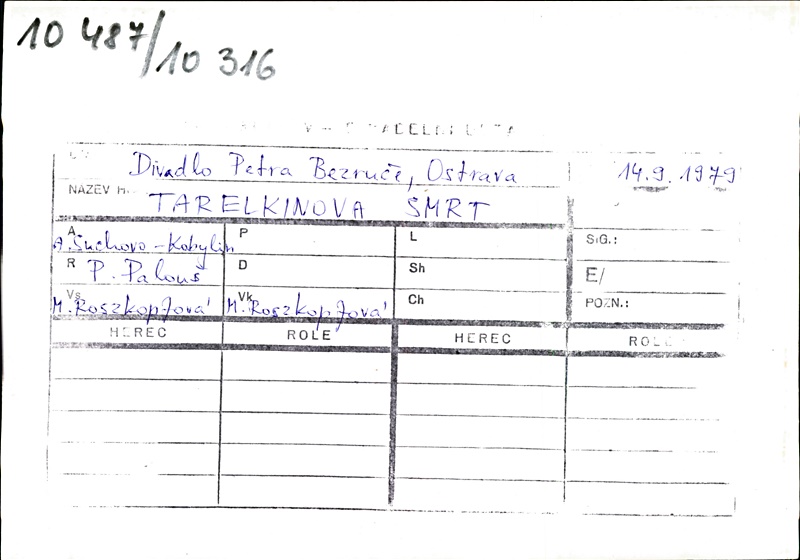 10 487/10 316
Divadlo Petra Bezruče, Ostrava 14.9. 1979
NÁZEV H. TARELKINOVA SMRT
A A. Suchovo-Kobylin P L SIG.:
R P. Palouš D Sh E/
Vs M. Roszkopfová Vk M. Roszkopfová Ch POZN.:
HEREC ROLE HEREC ROLE